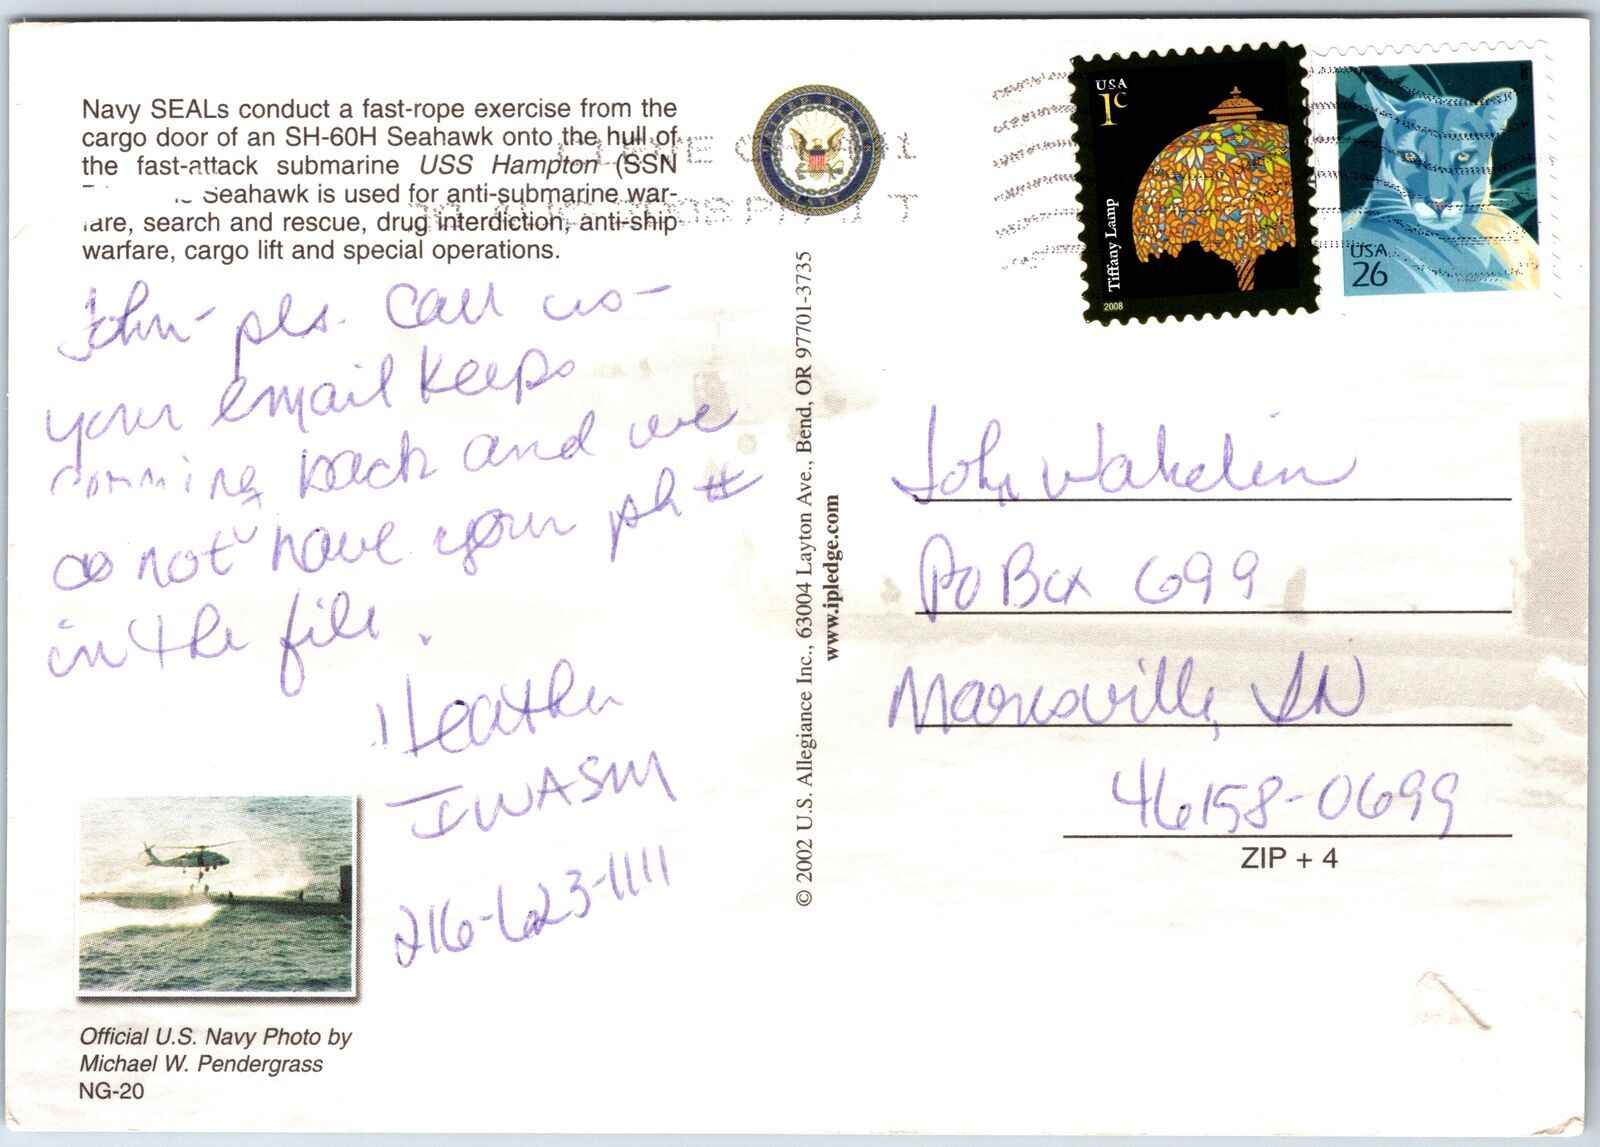 Navy SEALs conduct a fast-rope exercise from the
cargo door of an SH-60H Seahawk onto the hull of
the fast-attack submarine USS Hampton (SSN
Seahawk is used for anti-submarine war-
fare, search and rescue, drug interdiction, anti-ship
warfare, cargo lift and special operations.
John- pls. call us-
your email keeps
comming back and we
do not have your ph #
in the file.
Heather
IWASM
216-623-1111
Official U.S. Navy Photo by
Michael W. Pendergrass
NG-20
© 2002 U.S. Allegiance Inc., 63004 Layton Ave., Bend, OR 97701-3735
www.ipledge.com
USA
1c
Tiffany Lamp
2008
USA
26
John Wakelin
PO Box 699
Mooresville, IN
46158-0699
ZIP + 4